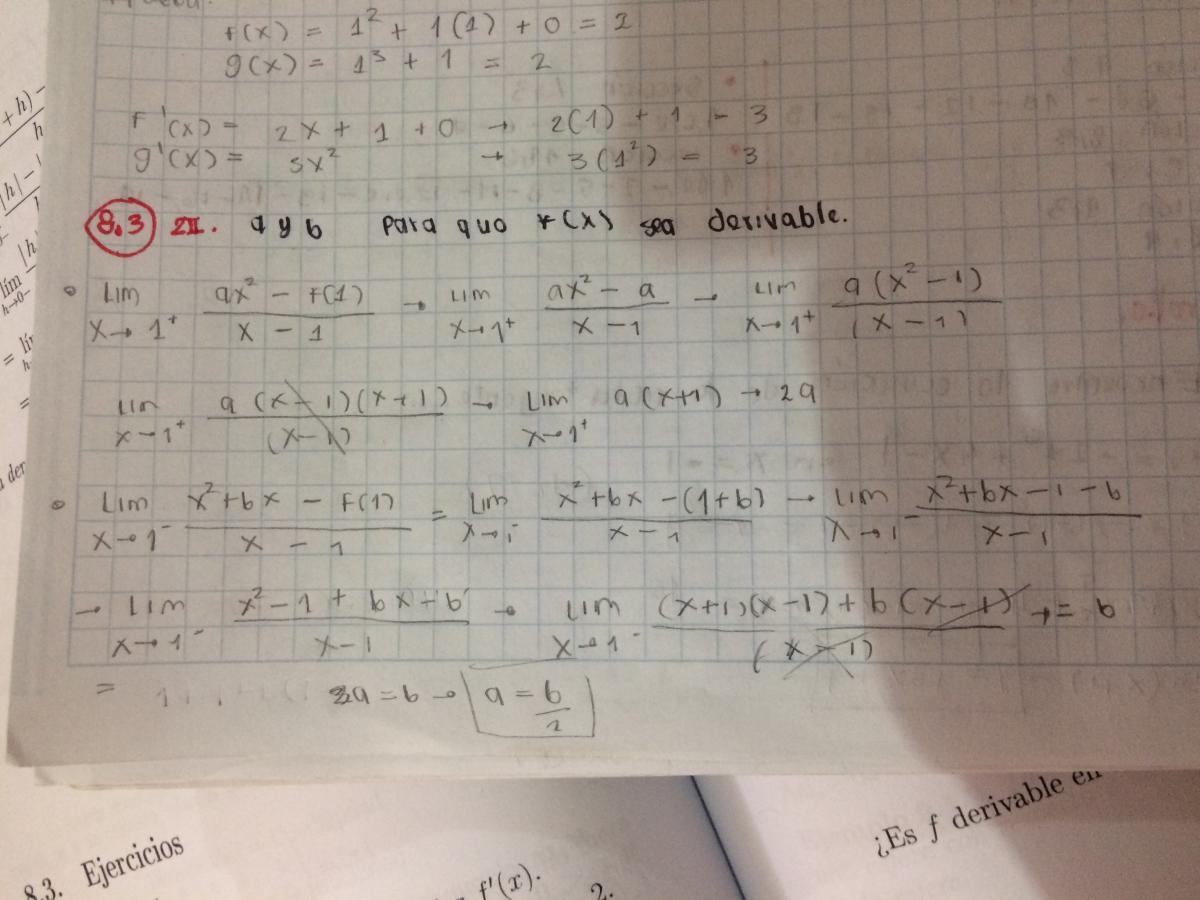 f(x) = 1² + 1(1) + 0 = 2
g(x) = 1³ + 1 = 2
+ h) −
h
F'(x) = 2x + 1 + 0 → 2(1) + 1 = 3
g'(x) = 3x² → 3(1²) = 3
8.3 a y b para quo f(x) sea derivable.
Lim x→1⁺ (ax² − f(1))/(x − 1) → Lim x→1⁺ (ax² − a)/(x − 1) → Lim x→1⁺ a(x² − 1)/(x − 1)
Lim x→1⁺ a(x − 1)(x + 1)/(x − 1) → Lim x→1⁺ a(x+1) → 2a
Lim x→1⁻ (x² + bx − f(1))/(x − 1) = Lim x→1⁻ (x² + bx − (1+b))/(x − 1) → Lim x→1⁻ (x² + bx − 1 − b)/(x − 1)
→ Lim x→1⁻ (x² − 1 + bx − b)/(x − 1) → Lim x→1⁻ ((x+1)(x−1) + b(x − 1))/(x − 1) → = b
= 2a = b → a = b/2
8.3. Ejercicios
f'(x).
2.
¿Es f derivable en